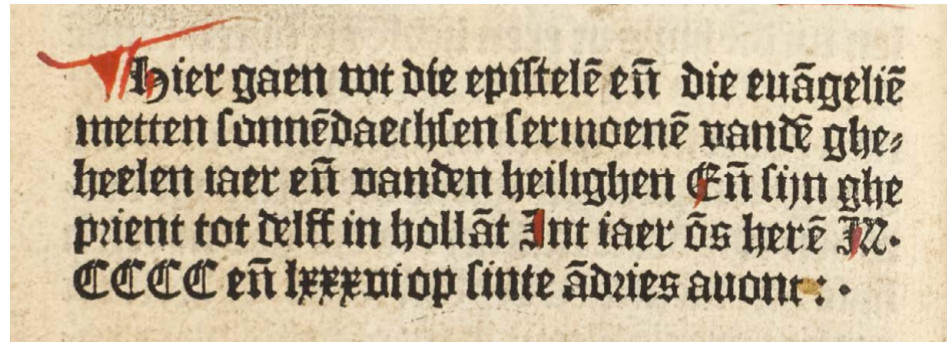 ¶ Hier gaen wt die epistelē eñ die euāgeliē
metten sonnēdaechsen sermoenē vandē ghe⸗
heelen iaer eñ vanden heilighen Eñ sijn ghe
prient tot delff in hollāt Int iaer õs herē M.
CCCC eñ lxxxvi op sinte ādries auont : .